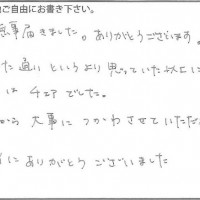 ご自由にお書き下さい。
無事届きました。ありがとうございます。
た通い というより 思っていた以上に
は チェアでした。
から 大事に つかわさせていただ
にありがとう ございました